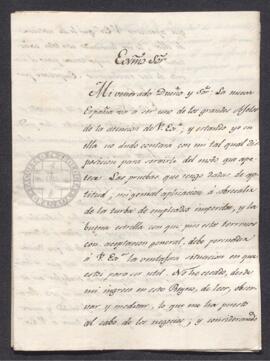 Exmo. Sor.
Mi venerado Dueño y Sor. La nueva
España va á ser uno de los grandes
de la atencion de V. Exa., y estando yo en
ella no dudo contará con mi tal qual dis-
posicion para servirla del modo que ape-
tezca. Las pruebas que tengo dadas de ap-
titud; mi genial aplicacion á
de la turba de empleados imperitos, y la
buena estrella con que piso estos terrenos
con aceptacion general, debe persuadir
á V. Exa. la ventajosa situacion en que
estoy para ser util. No he cesado, desde
mi ingreso en este Reyno, de leer, obser-
var y meditar, lo que me ha puesto
al cabo de los negocios; y considerando